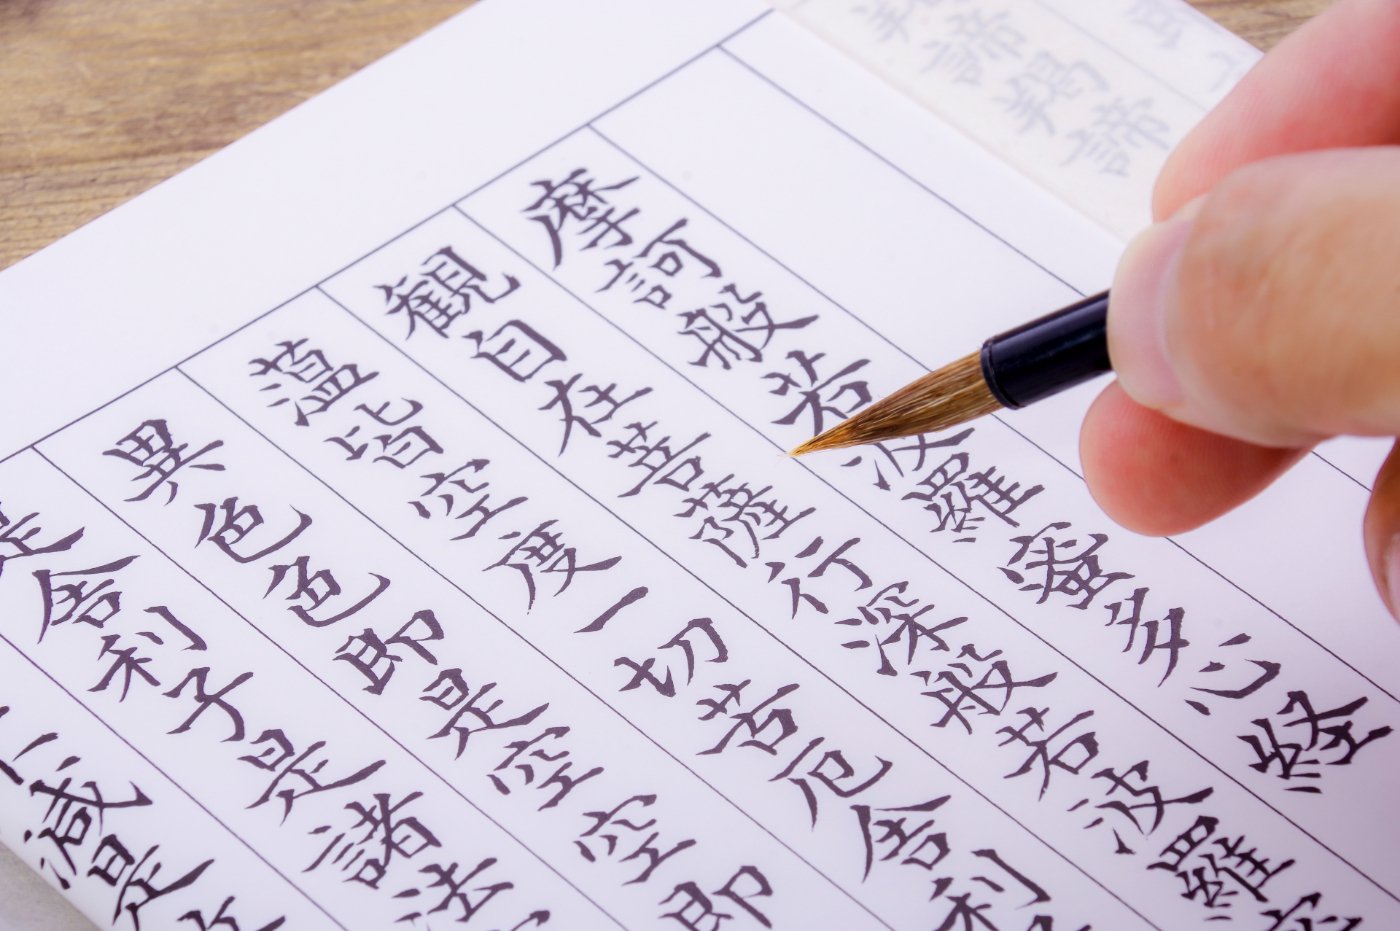 諦羯諦
摩訶般若波羅蜜多心経
観自在菩薩行深般若波羅
蘊皆空度一切苦厄舎利
異色色即是空空即
是舎利子是諸法
減是故